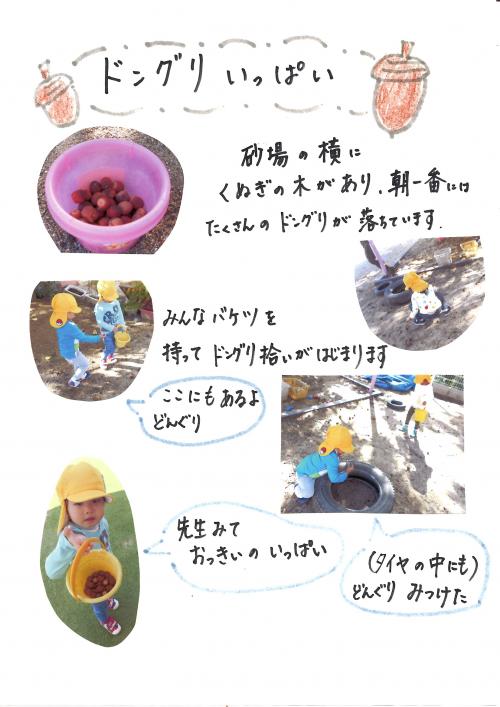 ドングリ いっぱい
砂場の横に
くぬぎの木があり、朝一番には
たくさんのドングリが落ちています.
みんなバケツを
持ってドングリ拾いがはじまります
ここにもあるよ
どんぐり
先生みて
おっきいの いっぱい
(タイヤの中にも)
どんぐり みつけた